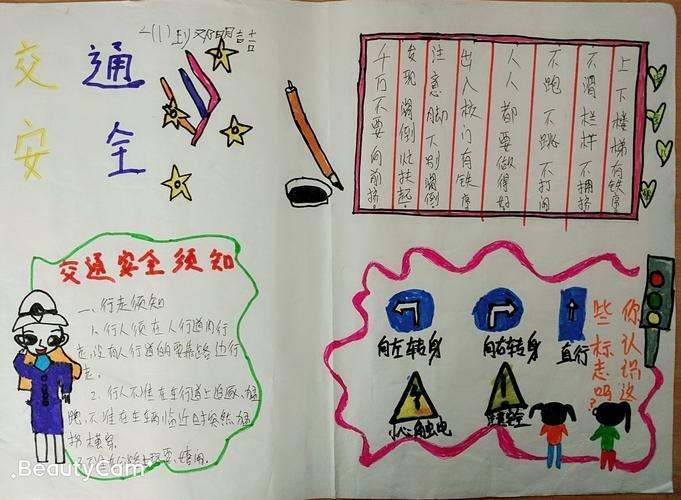 交 通
安 全
上下楼梯有铁序
不滑栏样不拥挤
不跑不跳不打闹
人人都要做得好
出入校门有铁序
注意脚下别滑倒
发现滑倒忙扶起!
千万不要向前挤!
交通安全须知
一、行走须知
1. 行人须在人行道内行
走,没有人行道的要靠路边行
走。
2. 行人不准在车行道上追逐、
跑,不准在车辆临近时突然
拐横穿。
你认识这
些标志吗?
向左转身
向右转身
直行
小心触电
注意安全
.BeautyCam